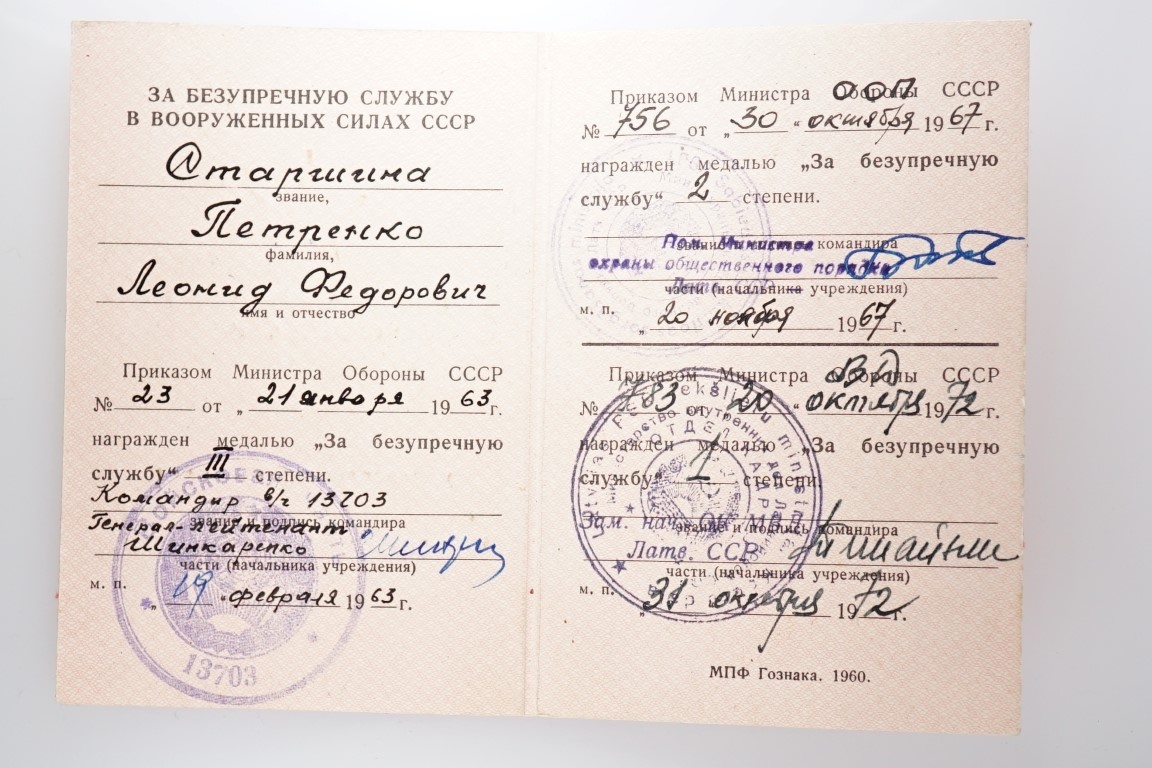 ЗА БЕЗУПРЕЧНУЮ СЛУЖБУ
В ВООРУЖЕННЫХ СИЛАХ СССР
Старшина
звание,
Петренко
фамилия,
Леонид Федорович
имя и отчество
Приказом Министра Обороны СССР
№ 23 от „21 января 1963 г.
награжден медалью „За безупречную
службу“ III степени.
Командир в/ч 13703
Генерал-лейтенант
звание и подпись командира
Шинкаренко
части (начальника учреждения)
м. п.
„19 февраля 1963 г.
13703
Приказом Министра Обороны СССР
ООП
№ 756 от „30“ октября 1967 г.
награжден медалью „За безупречную
службу“ 2 степени.
Пом. Министра
звание и подпись командира
охраны общественного порядка
Латв.
части (начальника учреждения)
м. п.
„20 ноября 1967 г.
Приказом Министра Обороны СССР
ВД
№ 783 от 20 “ октября 1972 г.
награжден медалью „За безупречную
службу“ 1 степени.
Зам. нач. ОК МВД
звание и подпись командира
Латв. ССР
части (начальника учреждения)
м. п.
„31 октября 1972 г.
ОТДЕЛ КАДРОВ
МПФ Гознака. 1960.